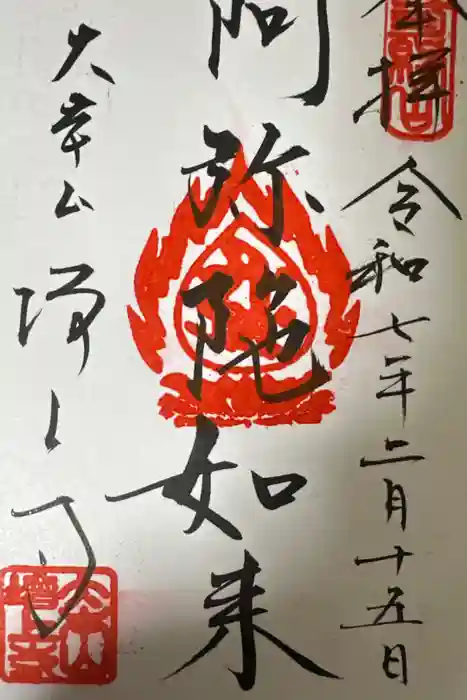 奉拝
令和七年二月十五日
阿弥陀如来
大本山
増上寺
大本山
増上寺